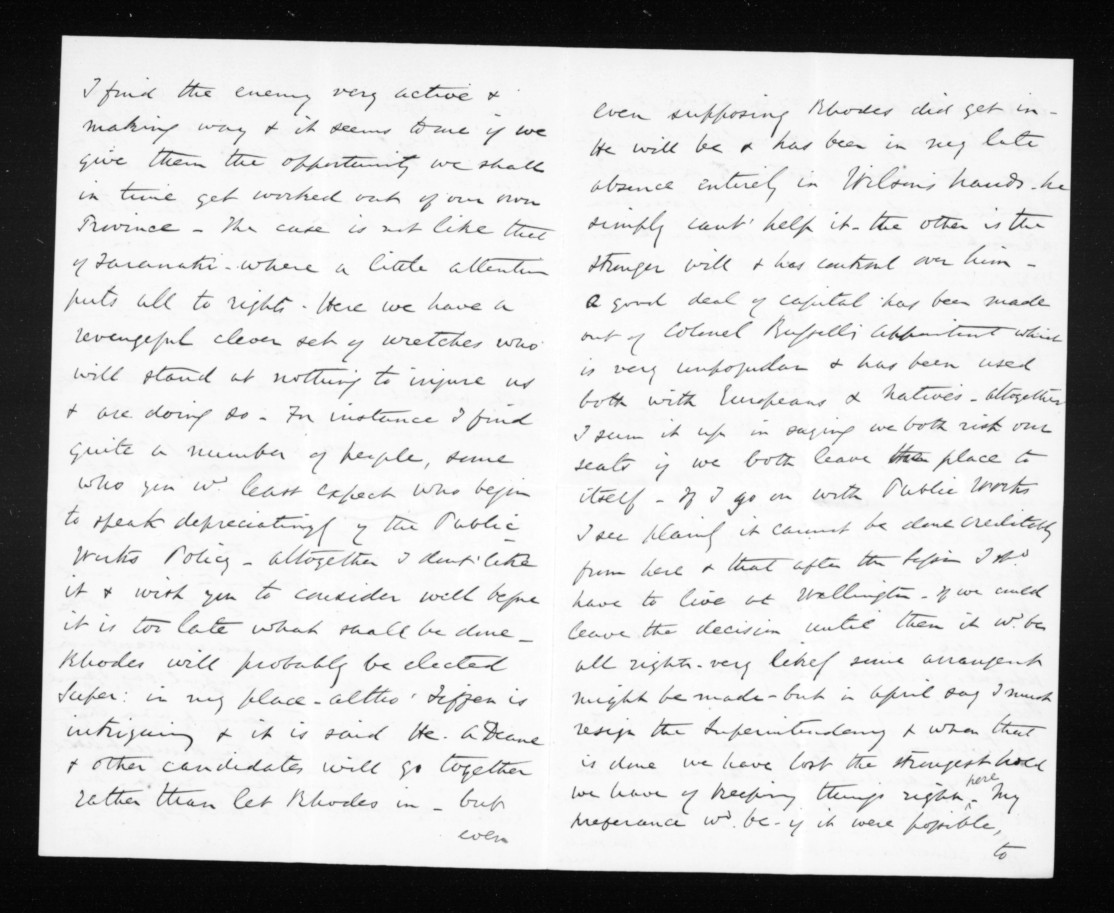 I find the enemy very active &
making way & it seems to me if we
give them the opportunity we shall
in time get worked out of our own
Province - The case is not like that
of Taranaki - where a little attention
puts all to rights - Here we have a
revengeful clever set of wretches who
will stand at nothing to injure us
& are doing so - For instance I find
quite a number of people, some
who you wd. least expect who begin
to speak depreciatingly of the Public
Works Policy - altogether I dont like
it & wish you to consider well before
it is too late what shall be done -
Rhodes will probably be elected
Super: in my place - altho' Tiffen is
intriguing & it is said He. A'Deane
& other candidates will go together
rather than let Rhodes in - but
even
even supposing Rhodes did get in -
He will be & has been in my late
absence entirely in Wilson's hands - he
simply cant help it - the other is the
stronger will & has control over him -
a good deal of capital has been made
out of Colonel Russell's appointment which
is very unpopular & has been used
both with Europeans & natives - altogether
I sum it up in saying we both risk our
seats if we both leave the place to
itself - If I go on with Public Works
I see plainly it cannot be done creditably
from here & that after the Session I shd
have to live at Wellington - if we could
leave the decision until then it wd. be
all rights - very likely some arrangent
might be made - but in april say I must
resign the Superintendency & when that
is done we have lost the strongest hold
we have of keeping things right here - My
preferance wd. be - if it were possible,
to